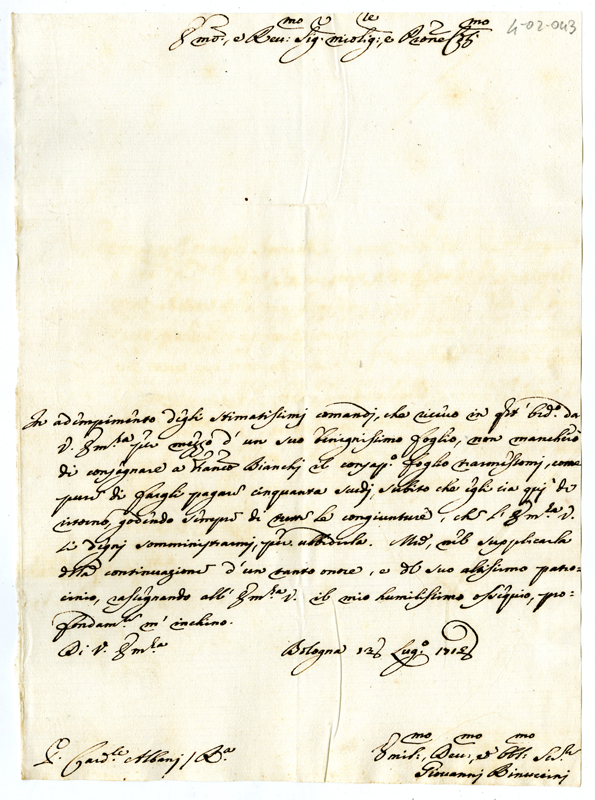 4-02-043
Emo., e Reu:mo Sig:r mio Sig:e, e Prone Col:mo
In adempimento degli stimatissimi comandi, che riceuo in qst' ord.o da
V. Em.za per mezzo d'un suo benignissimo foglio, non mancherò
di consegnare a Franco Bianchi il consap.o foglio trasmessomi, come
pure di fargli pagare cinquanta scudi subito che egli sia qui di
ritorno, godendo sempre di tutte le congiunture, che l'Em.za V.
si degni somministrarmi, per ubbidirla. Mè, nò supplicarla
della continuazione d'un tanto onore, e del suo altissimo patro-
cinio, rasegnando all' Em.za V. il mio humilissimo ossequio, pro-
fondam.te m'inchino.
Di V. Em.za
Bologna 13 Lug.o 1712
S. Card.le Albani / R.a
Humil:mo, Deu:mo, et Obl:mo Se.re
Giovanni Binuccini